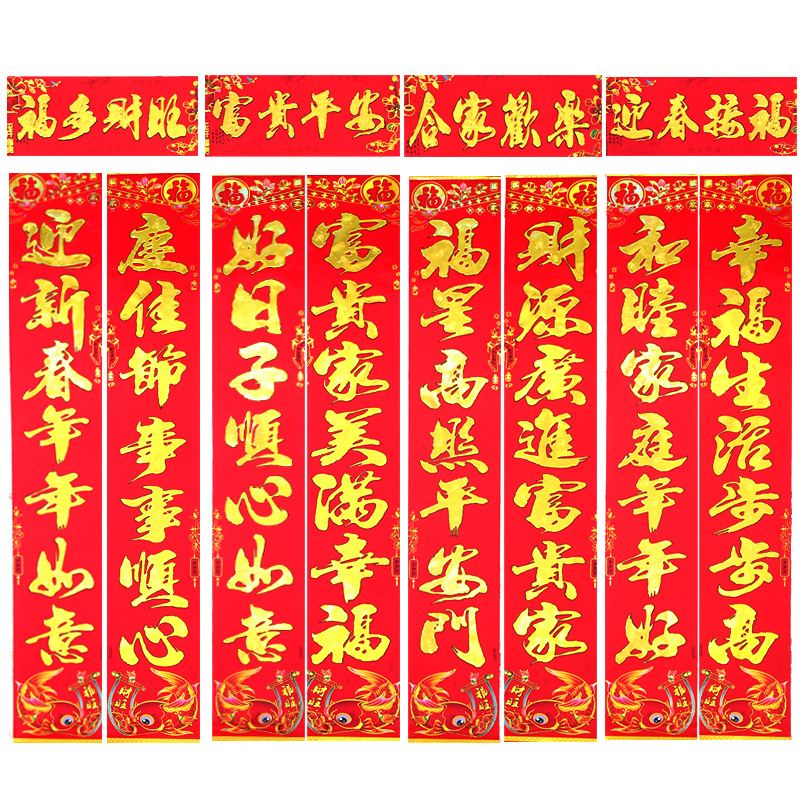 福多财旺
富貴平安
合家歡樂
迎春接福
迎新春年年如意
慶佳節事事順心
好日子順心如意
富貴家美满幸福
福星高照平安門
財源廣進富貴家
和睦家庭年年好
幸福生活步步高
福
福
福
福
福
福
福
福
福旺
财旺
福旺
财旺
福旺
财旺
福旺
财旺